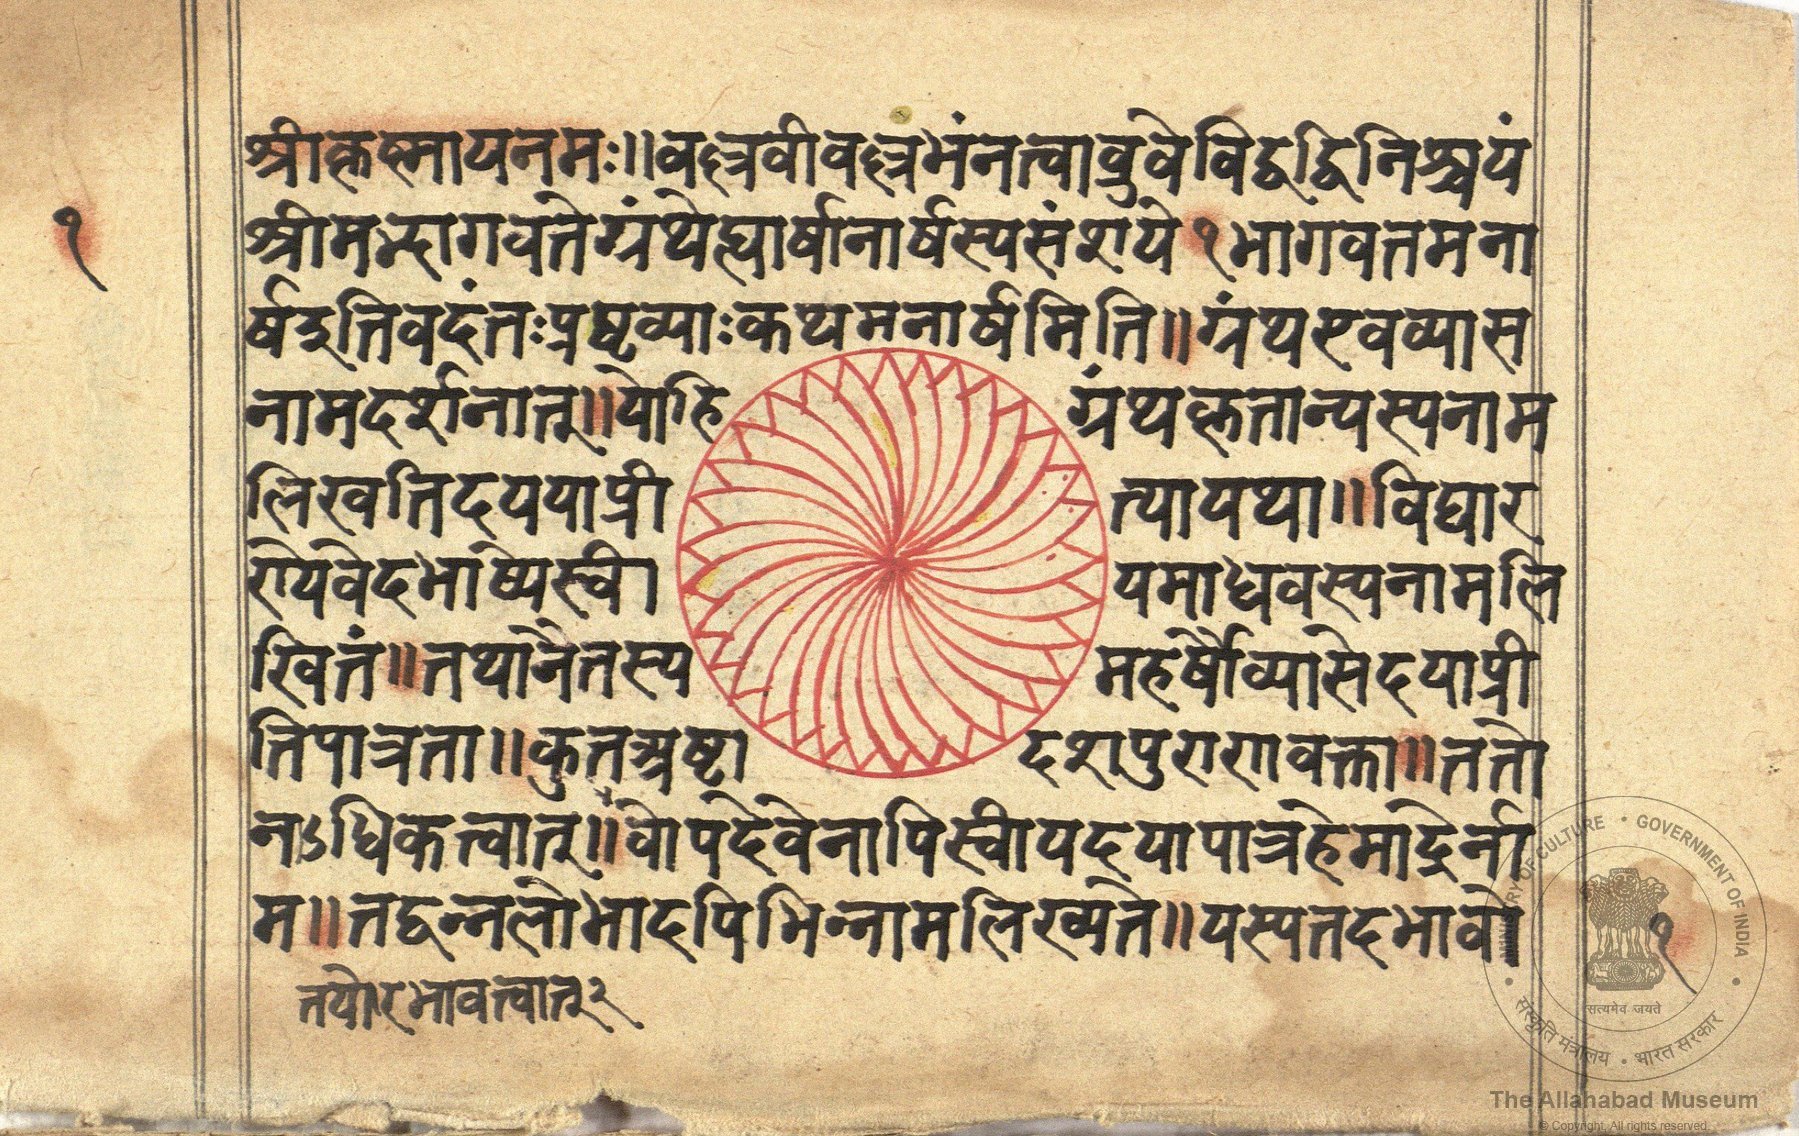 श्रीकृष्णायनमः॥वल्लवीवल्लभंनत्वाब्रुवेविद्वद्विनिश्चयं
श्रीमद्भागवतेग्रंथेह्यार्षानार्षस्यसंशये१भागवतमना
१
र्षइतिवदंतःप्रष्टव्याःकथमनार्षमिति॥ग्रंथएवव्यास
नामदर्शनात्॥योहि ग्रंथकृतान्यस्यनाम
लिखतिदययाप्री त्यायथा॥विद्यार
ण्येवेदभाष्येस्वी यमाधवस्यनामलि
खितं॥तथानैतस्य महर्षौव्यासेदयाप्री
तिपात्रता॥कुतअष्टा दशपुराणवक्ता॥ततो
नऽधिकत्त्वात्॥वोपदेवेनापिस्वीयदयापात्रहेमाद्रेर्ना
म॥तद्वन्नलोभादपिभिन्नामलिख्यते॥यस्यतदभावो
१
तयोरभावत्त्वात्२
MINISTRY OF CULTURE • GOVERNMENT OF INDIA
सत्यमेव जयते
संस्कृति मंत्रालय • भारत सरकार
The Allahabad Museum
© Copyright, All rights reserved